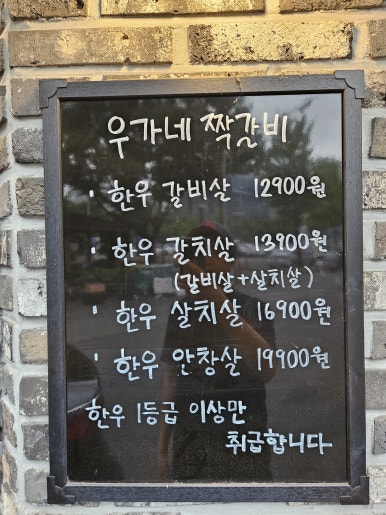 우가네 짝갈비
· 한우 갈비살 12900원
· 한우 갈치살 13900원
(갈비살+살치살)
· 한우 살치살 16900원
· 한우 안창살 19900원
한우 1등급 이상만
취급합니다